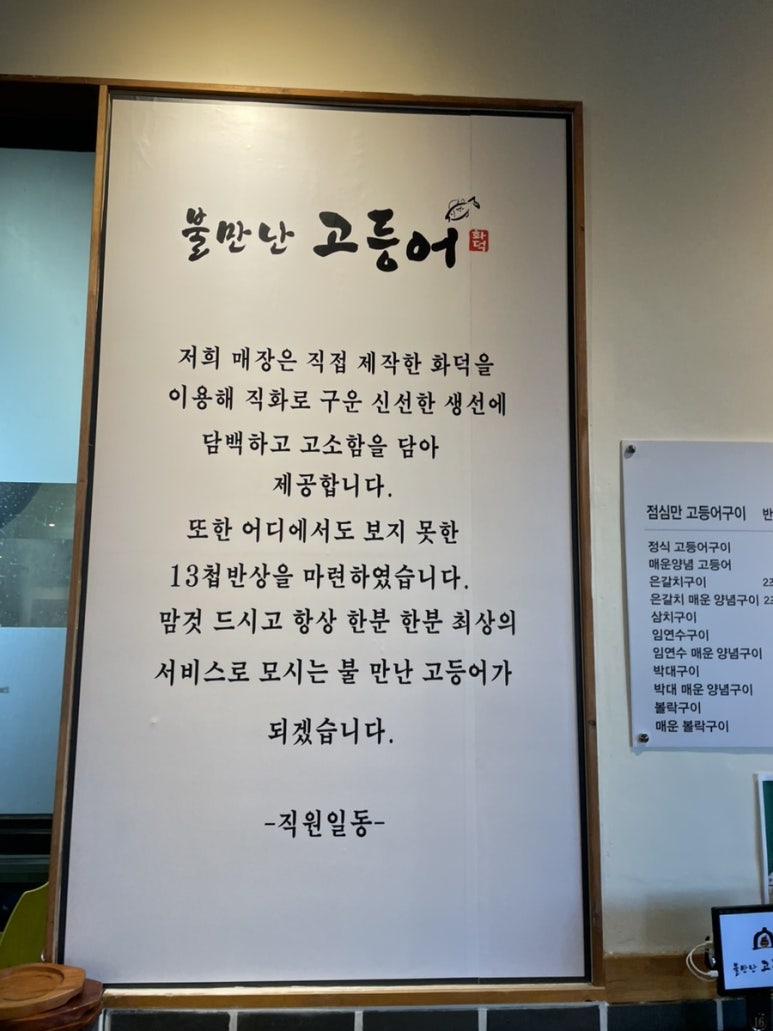 불만난 고등어 화덕
저희 매장은 직접 제작한 화덕을
이용해 직화로 구운 신선한 생선에
담백하고 고소함을 담아
제공합니다.
또한 어디에서도 보지 못한
13첩반상을 마련하였습니다.
맘껏 드시고 항상 한분 한분 최상의
서비스로 모시는 불 만난 고등어가
되겠습니다.
-직원일동-
점심만 고등어구이 반
정식 고등어구이
매운양념 고등어
은갈치구이 23
은갈치 매운 양념구이 23
삼치구이
임연수구이
임연수 매운 양념구이
박대구이
박대 매운 양념구이
볼락구이
매운 볼락구이
불만난 고